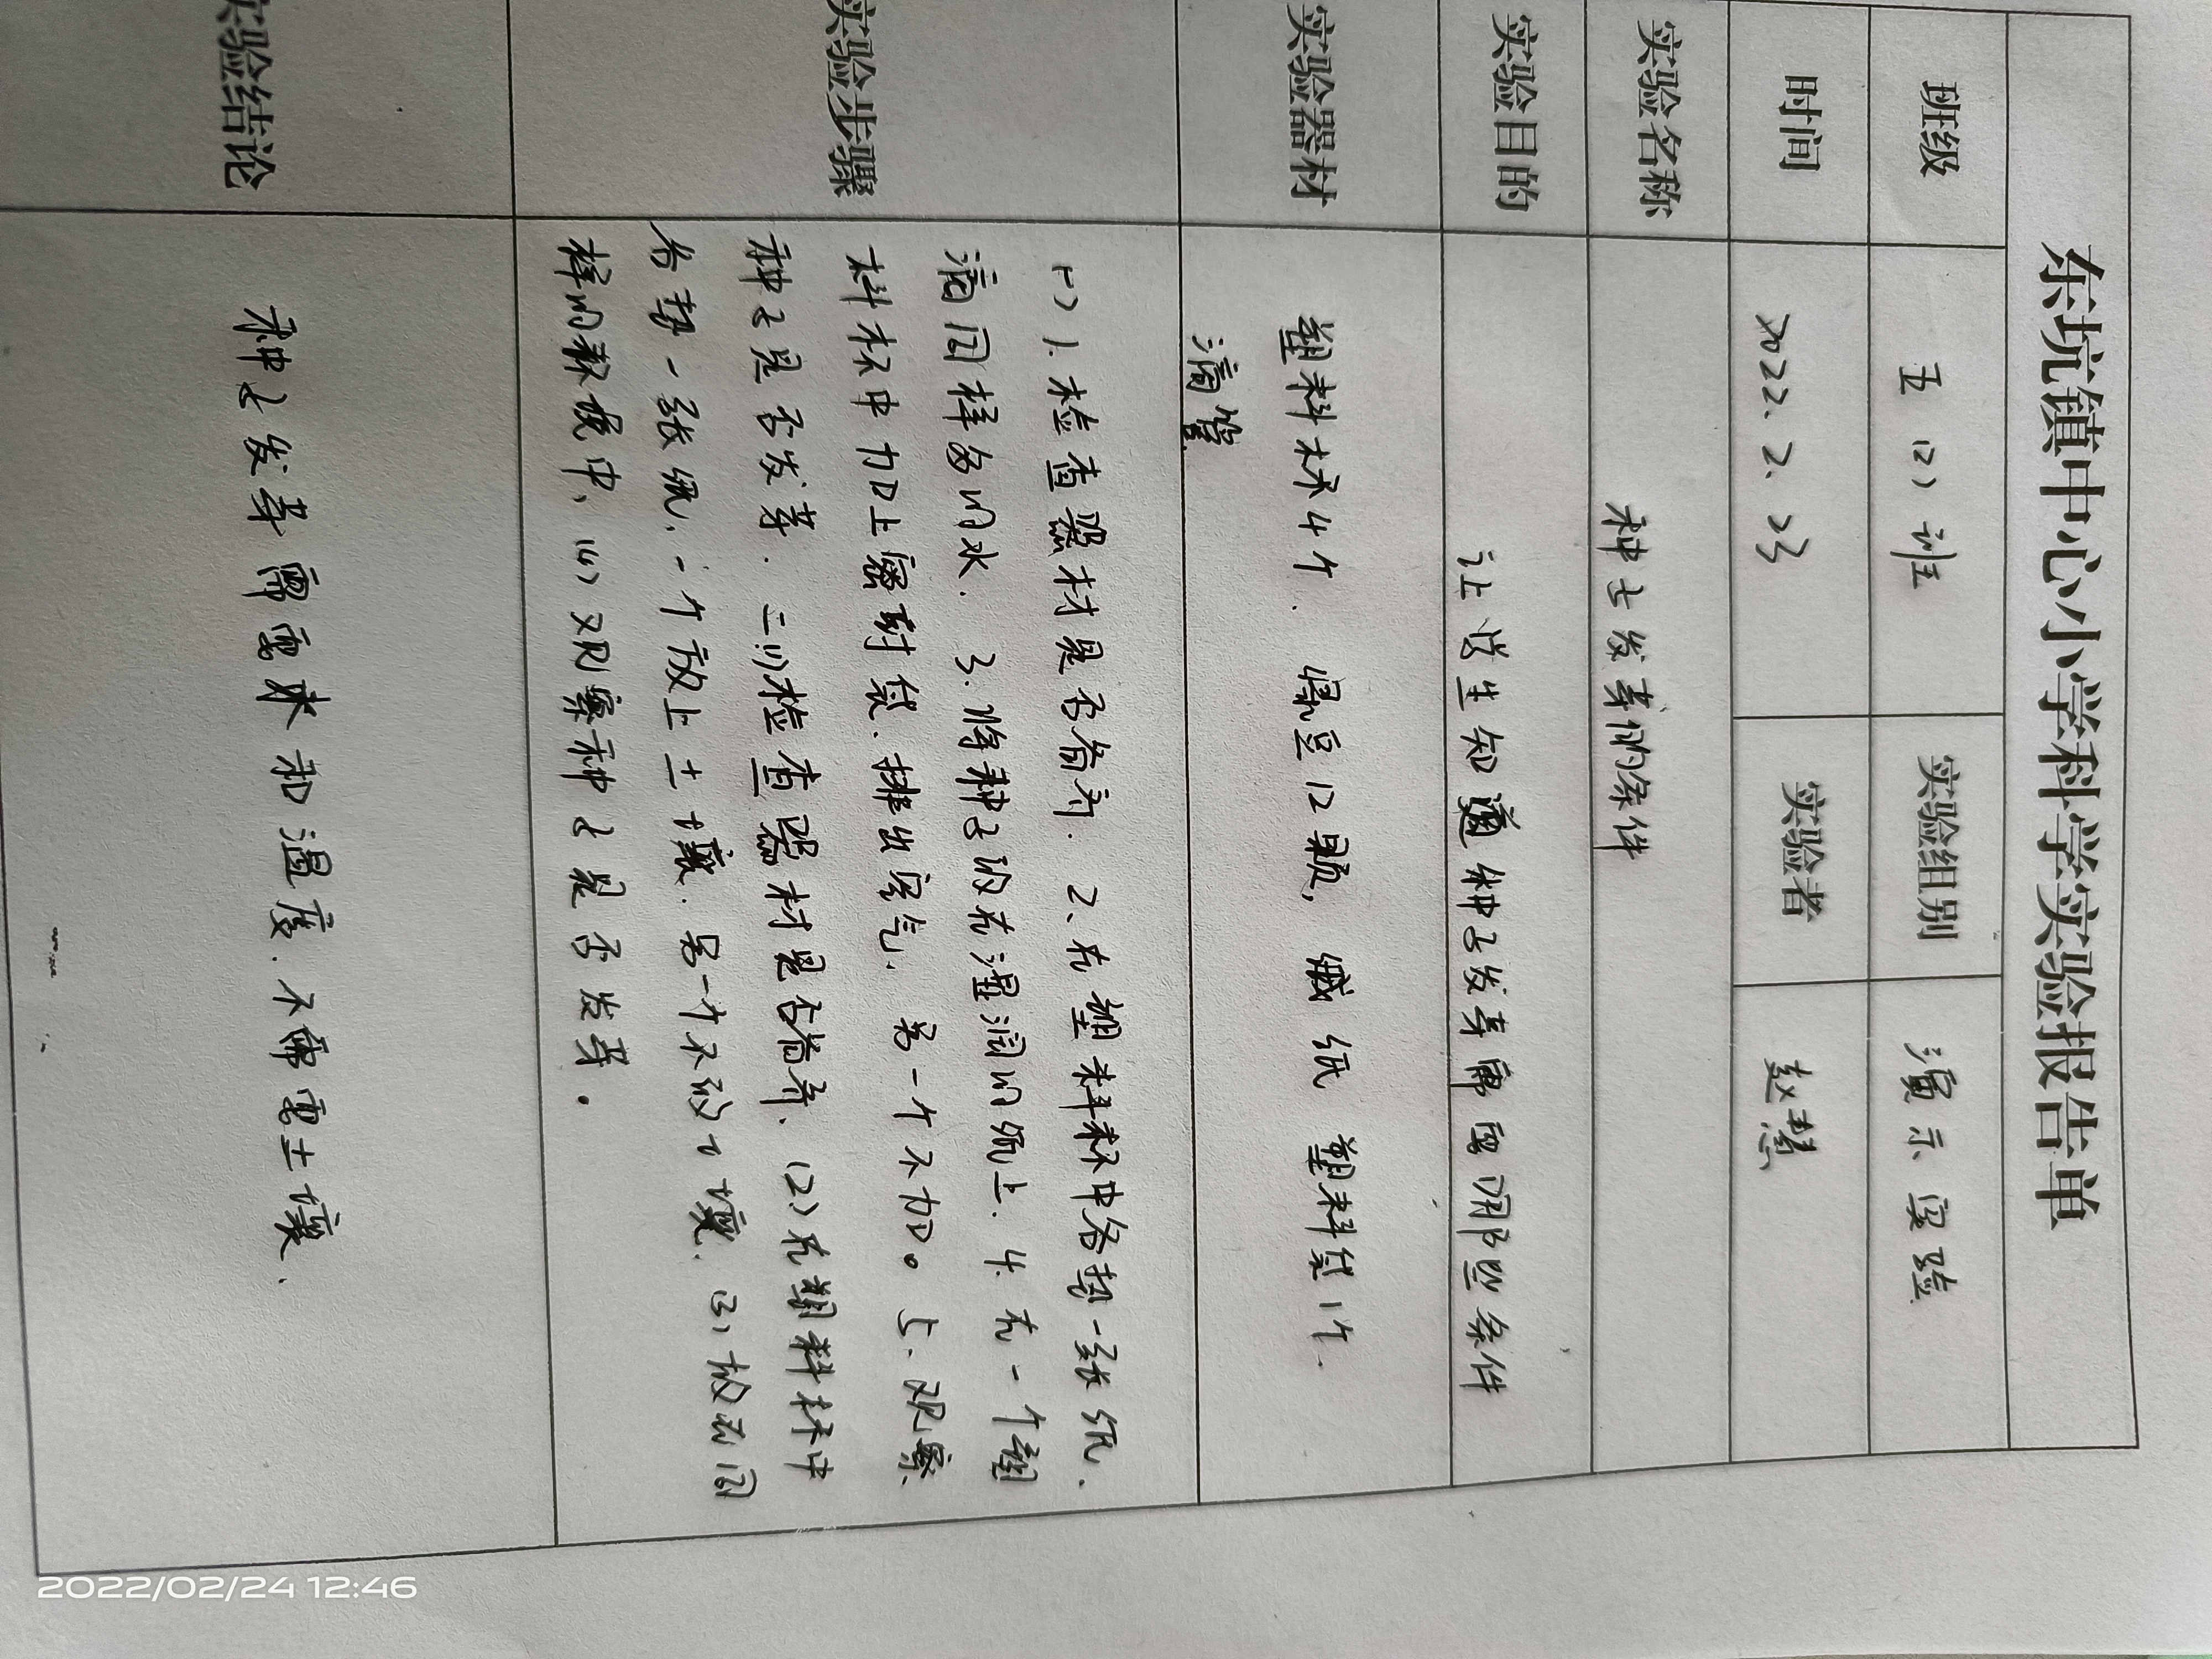 东坑镇中心小学科学实验报告单
班级 五(2)班 实验组别 演示实验
时间 2022.2.23 实验者 赵慧
实验名称 种子发芽的条件
实验目的 让学生知道种子发芽需要哪些条件
实验器材 塑料杯4个. 绿豆12颗, 餐纸 塑料袋1个.
滴管
实验步骤
(一)1.检查器材是否备齐. 2、在塑料杯中各垫一张纸.
滴同样多的水. 3.将种子放在湿润的纸上. 4.在一个塑
料杯中加上密封袋.排出空气. 另一个不加。5.观察
种子是否发芽. 二.(1)检查器材是否备齐、(2)在塑料杯中
各垫一张纸,一个放上土壤.另一个不放土壤.(3)放在同
样的环境中、(4)观察种子是否发芽。
实验结论 种子发芽需要水和温度.不需要土壤.
2022/02/24 12:46